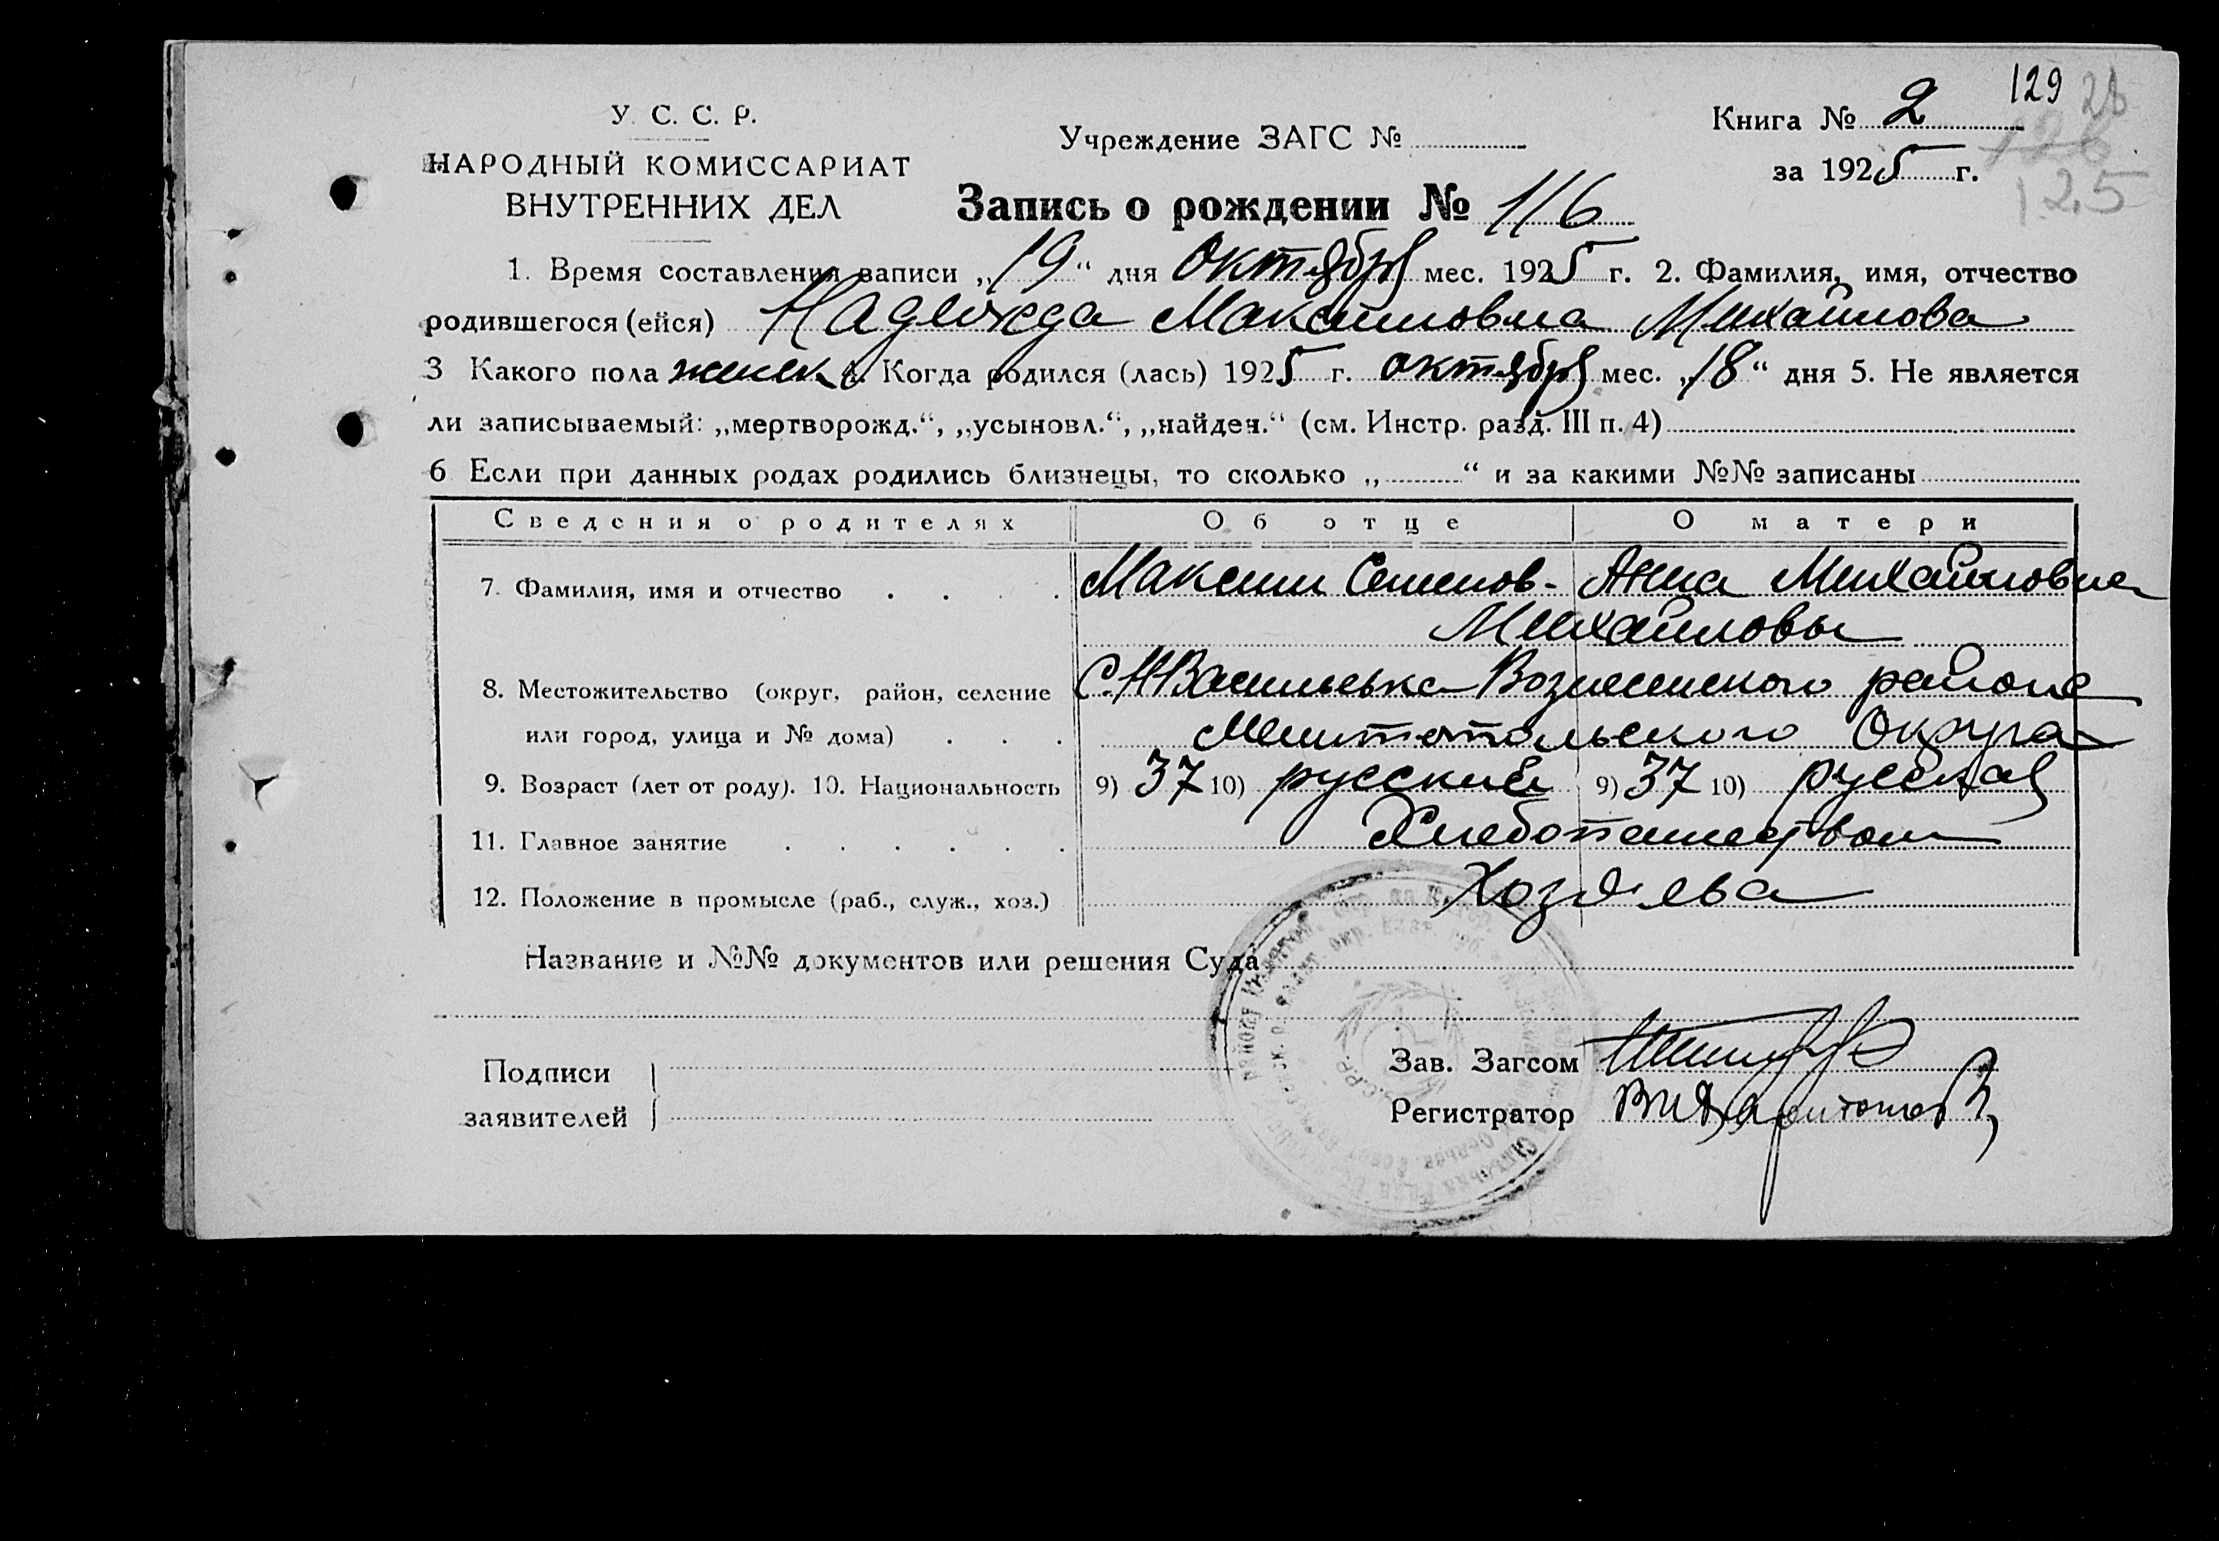 129
28
У. С. С. Р.
Книга № 2
126
Учреждение ЗАГС №
НАРОДНЫЙ КОМИССАРИАТ
за 1925 г.
125
ВНУТРЕННИХ ДЕЛ
Запись о рождении № 116
1. Время составления записи „19“ дня Октября мес. 1925 г. 2. Фамилия, имя, отчество
родившегося (ейся) Надежда Максимовна Михайлова
3 Какого пола женск 4. Когда родился (лась) 1925 г. октября мес. „18“ дня 5. Не является
ли записываемый: „мертворожд.“, „усыновл.“, „найден.“ (см. Инстр. разд. III п. 4)
6 Если при данных родах родились близнецы, то сколько „ “ и за какими №№ записаны
Сведения о родителях Об отце О матери
7. Фамилия, имя и отчество Максим Семенов- Анна Михайловна
Михайловы
8. Местожительство (округ, район, селение С. НВасильевка Вознесенского района
или город, улица и № дома) Мелитопольского Округа
9. Возраст (лет от роду). 10. Национальность 9) 37 10) русский 9) 37 10) русская
11. Главное занятие Хлебопашеством
12. Положение в промысле (раб., служ., хоз.) Хозяева
Название и №№ документов или решения Суда
Подписи
заявителей
Зав. Загсом
Регистратор